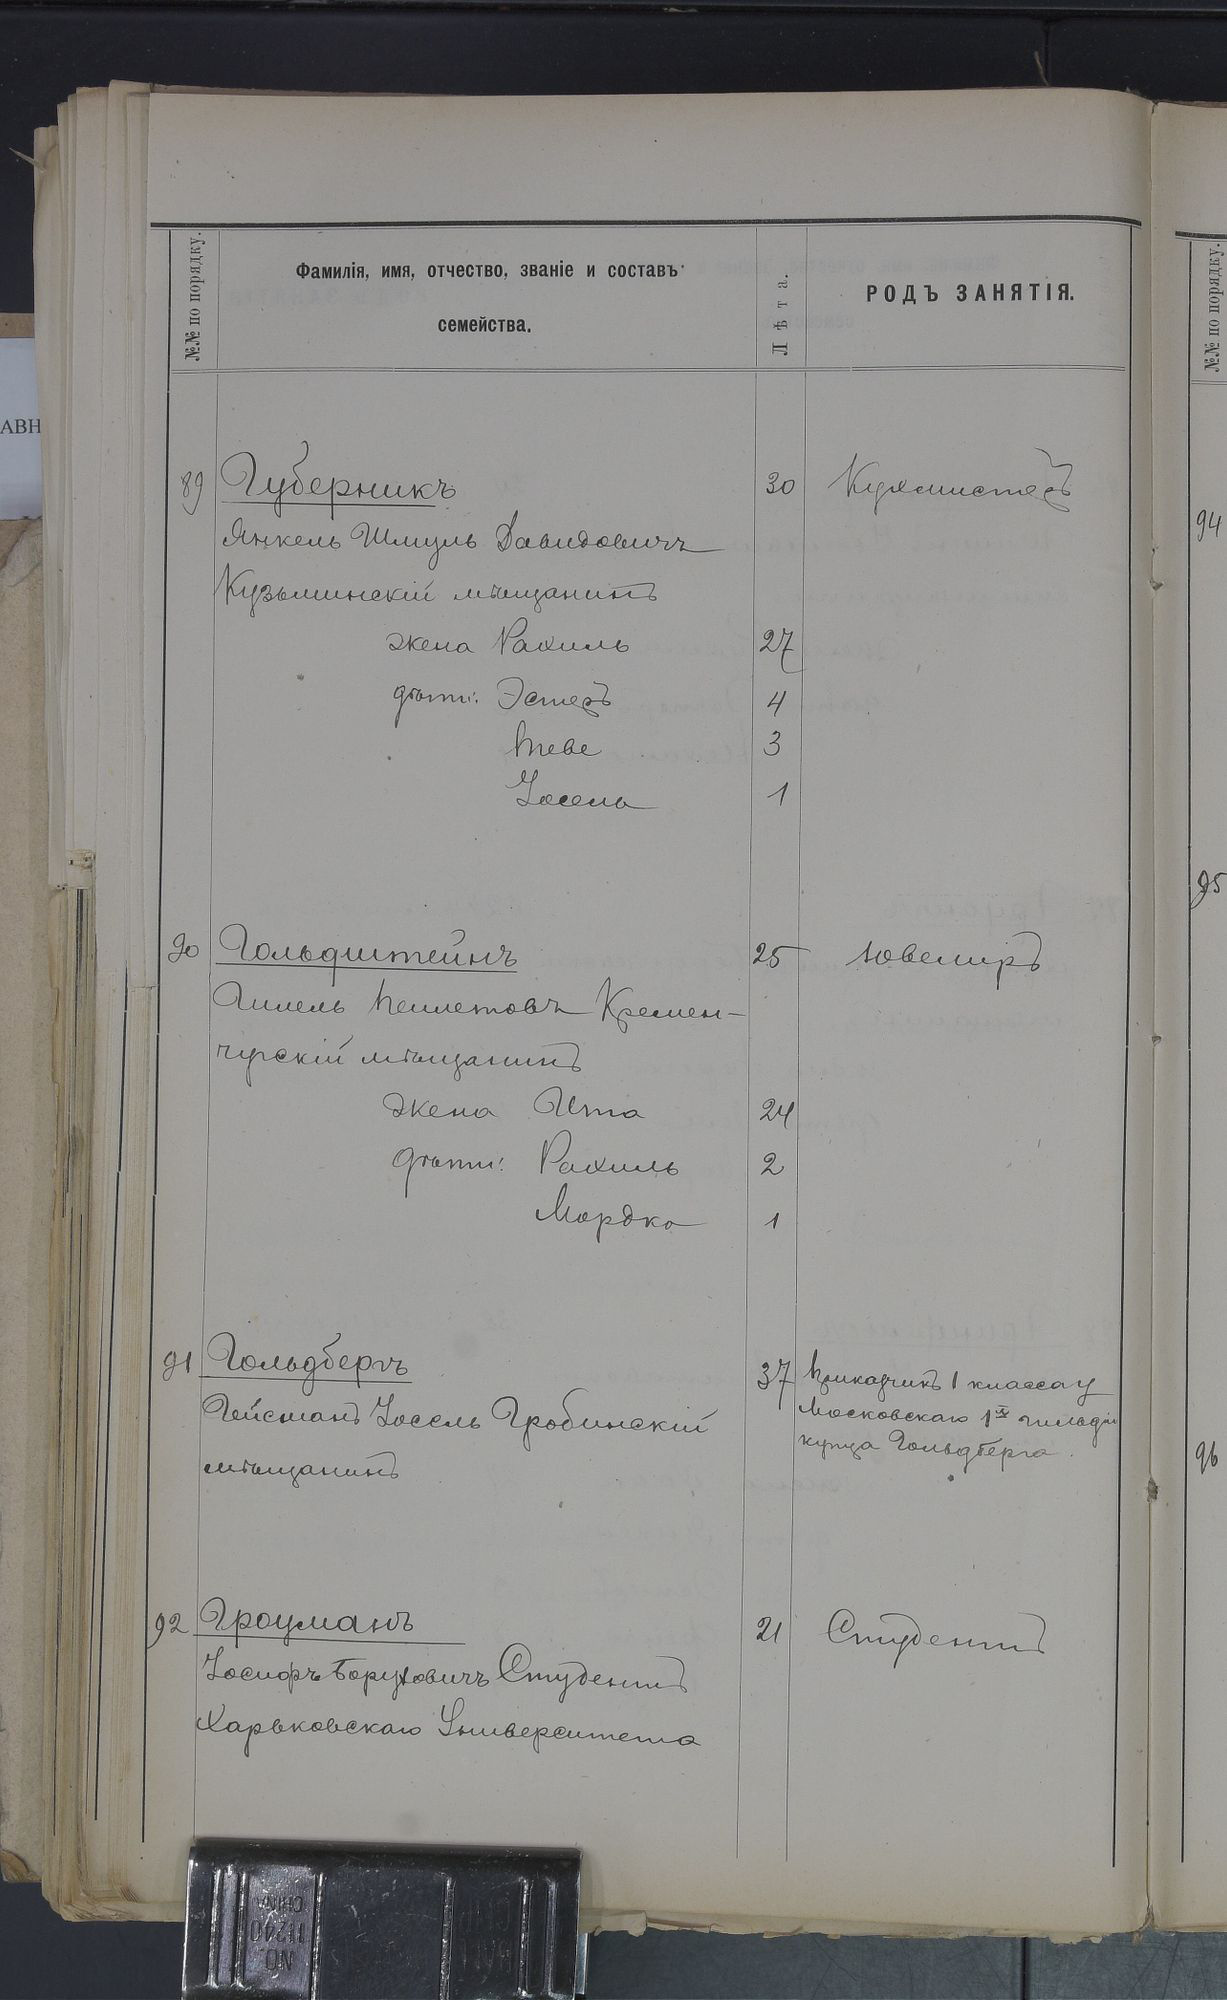 №№ по порядку.
Фамилія, имя, отчество, званіе и составъ
семейства.
Лѣта.
РОДЪ ЗАНЯТІЯ.
№№ по порядку.
АВН
89 Губерникъ 30 Кухмистеръ
Янкель Шмуль Давидовичъ
Кузьминскій мѣщанинъ
жена Рахиль 27
дѣти: Эстеръ 4
3
Іосель 1
90 Гольдштейнъ 25 Ювелиръ
Гилель Кремен-
чугскій мѣщанинъ
жена Ита 24
дѣти: Рахиль 2
Мордко 1
91 Гольдбергъ 37 Приказчикъ 1 класса у
Московскаго 1й гильдіи
купца Гольдберга.
Гейсманъ Іосель Гробинскій
мѣщанинъ
92 Гроуманъ 21 Студентъ
Іосифъ Боруховичъ Студентъ
Харьковскаго Университета
94
95
96
NO.
11240
CHINA